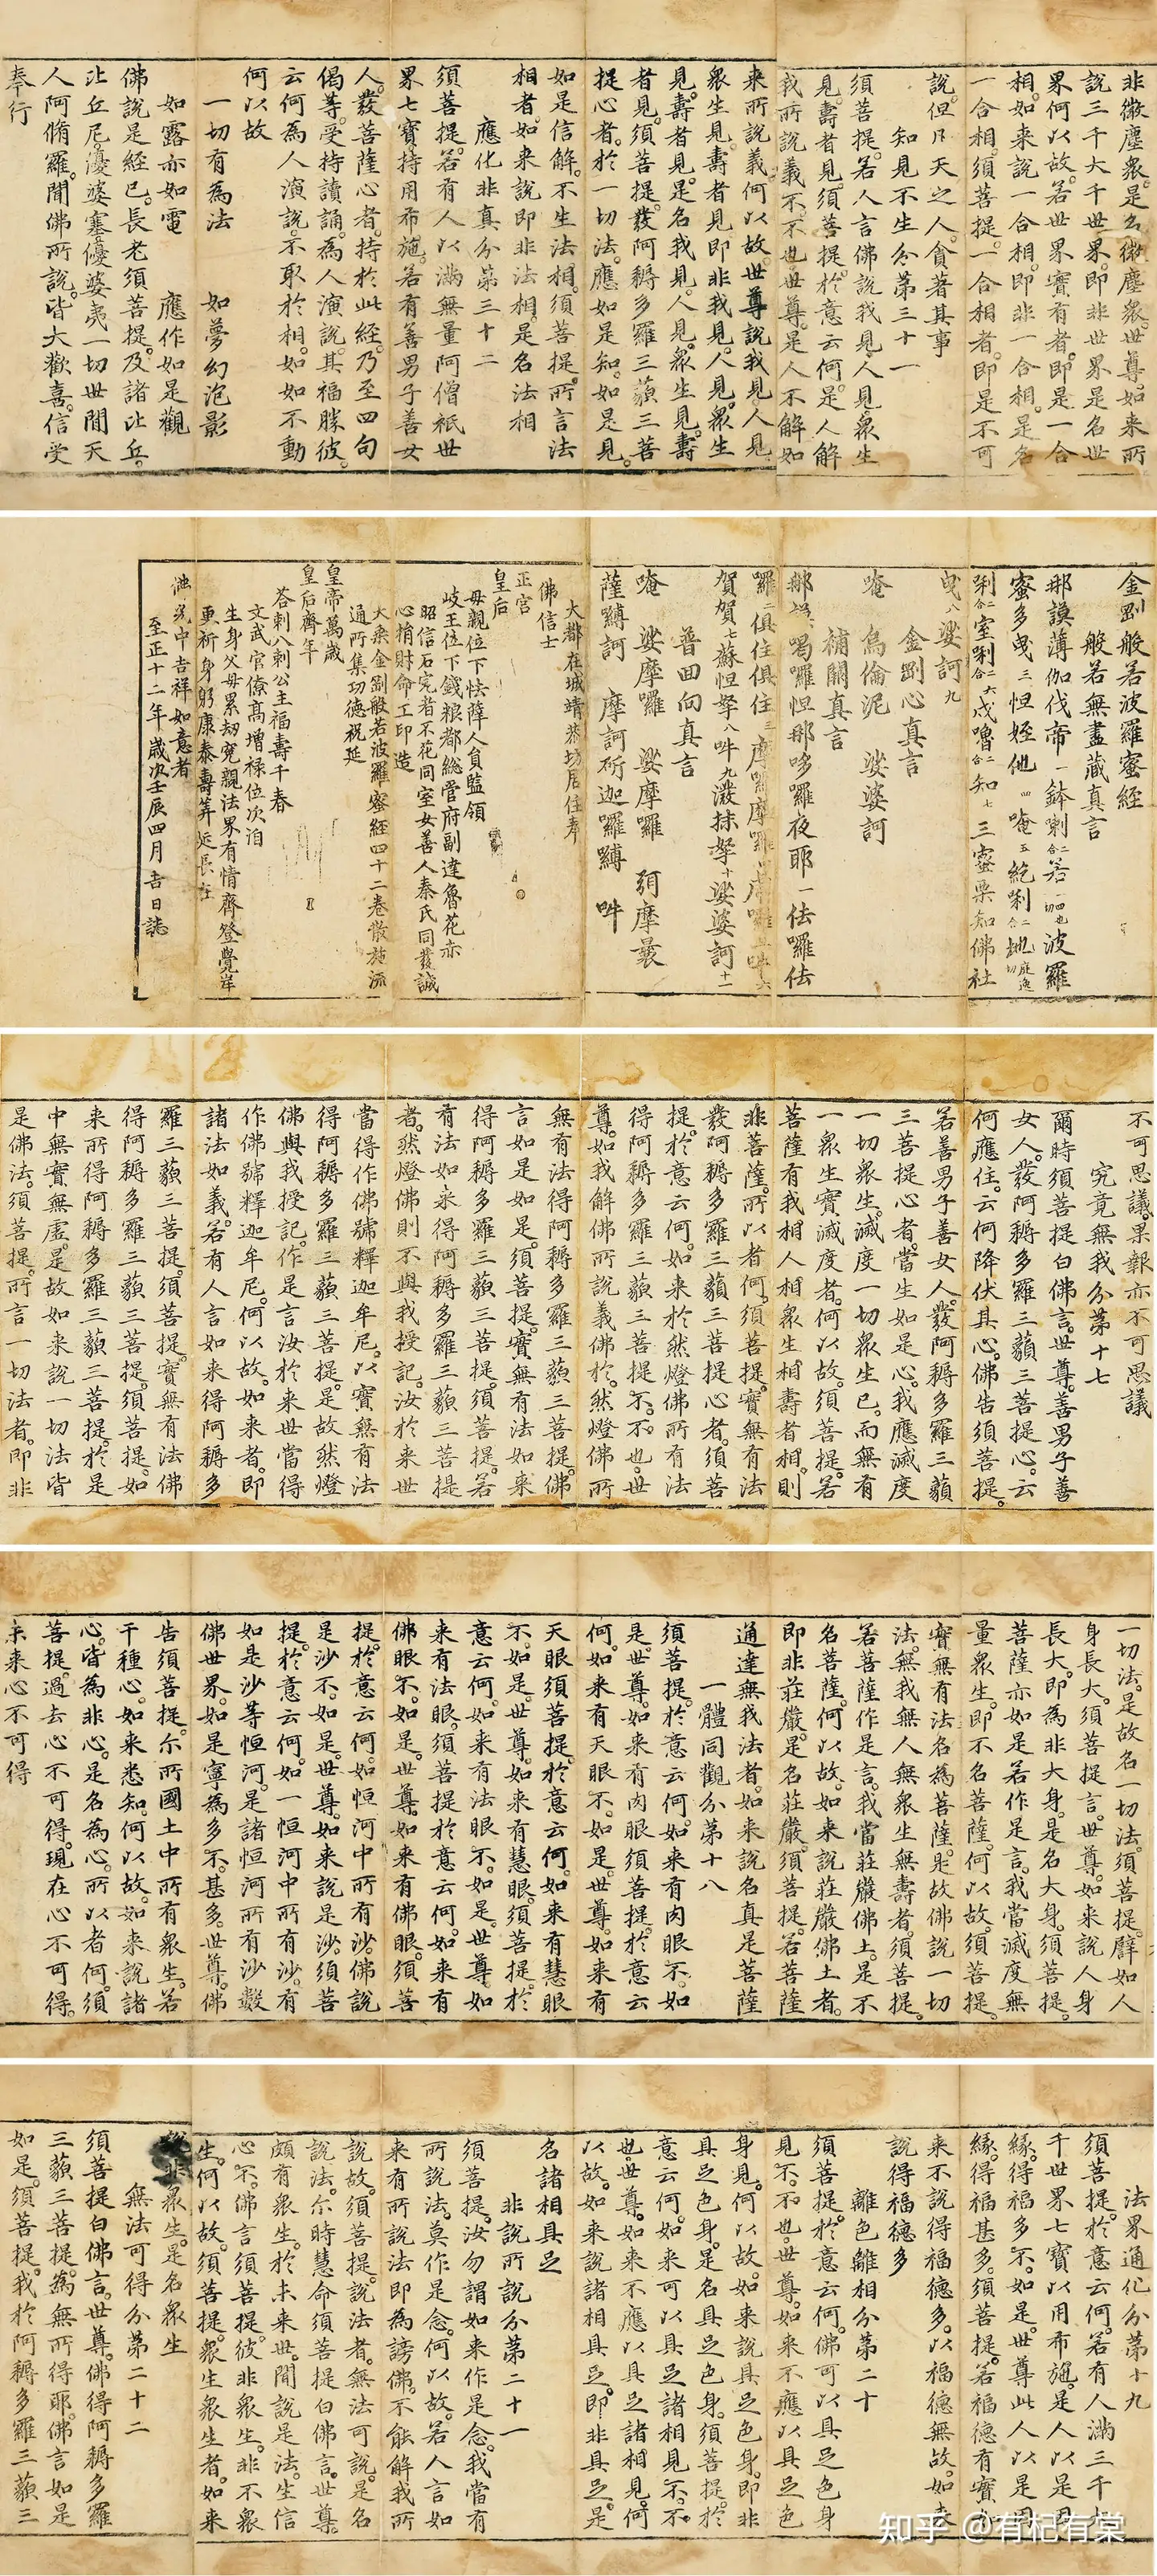 非微塵衆是名微塵衆世尊如来所
說三千大千世界即非世界是名世
界何以故若世界實有者即是一合
相如来說一合相即非一合相是名
一合相須菩提一合相者即是不可
說但凡夫之人貪著其事
知見不生分第三十一
須菩提若人言佛說我見人見衆生
見壽者見須菩提於意云何是人解
我所說義不不也世尊是人不解如
来所說義何以故世尊說我見人見
衆生見壽者見即非我見人見衆生
見壽者見是名我見人見衆生見壽
者見須菩提發阿耨多羅三藐三菩
提心者於一切法應如是知如是見
如是信解不生法相須菩提所言法
相者如来說即非法相是名法相
應化非真分第三十二
須菩提若有人以滿無量阿僧祇世
界七寶持用布施若有善男子善女
人發菩薩心者持於此經乃至四句
偈等受持讀誦為人演說其福勝彼
云何為人演說不取於相如如不動
何以故
一切有為法 如夢幻泡影
如露亦如電 應作如是觀
佛說是經已長老須菩提及諸比丘
比丘尼優婆塞優婆夷一切世間天
人阿脩羅聞佛所說皆大歡喜信受
奉行
金剛般若波羅蜜經
般若無盡藏真言
那謨薄伽伐帝一鉢唎二合若波羅
蜜多曳三怛姪他四唵五紇唎二合地
唎二合室唎二合六戍嚕二合知七三蜜栗知佛社
曳八娑訶九
金剛心真言
唵 烏倫泥 娑婆訶
補闕真言
喝囉怛那哆囉夜耶一佉囉佉
囉二俱住俱住三摩囉摩囉
賀賀七蘇怛拏八吽九潑抹拏十娑婆訶十一
普回向真言
唵 娑摩囉 娑摩囉 弭摩曩
薩嚩訶 摩訶斫迦囉嚩 吽
大都在城靖恭坊居住奉
佛信士
正宮
皇后
母親位下怯薛人貟監領
岐王位下錢粮都緫管府副達魯花赤
昭信石宪者不花同室女善人秦氏同發誠
心捎財命工印造
大乘金剛般若波羅蜜經四十二卷散施流
通所集功德祝延
皇帝萬歲
皇后齊年
荅剌八剌公主福壽千春
文武官僚高增禄位次洎
生身父母累劫寃親法界有情齊登覺岸
更祈身躬康泰壽筭延長在
中吉祥如意者
至正十二年歲次壬辰四月吉日誌
不可思議果報亦不可思議
究竟無我分第十七
爾時須菩提白佛言世尊善男子善
女人發阿耨多羅三藐三菩提心云
何應住云何降伏其心佛告須菩提
若善男子善女人發阿耨多羅三藐
三菩提心者當生如是心我應滅度
一切衆生滅度一切衆生已而無有
一衆生實滅度者何以故須菩提若
菩薩有我相人相衆生相壽者相則
非菩薩所以者何須菩提實無有法
發阿耨多羅三藐三菩提心者須菩
提於意云何如来於然燈佛所有法
得阿耨多羅三藐三菩提不不也世
尊如我解佛所說義佛於然燈佛所
無有法得阿耨多羅三藐三菩提佛
言如是如是須菩提實無有法如来
得阿耨多羅三藐三菩提須菩提若
有法如来得阿耨多羅三藐三菩提
者然燈佛則不與我授記汝於来世
當得作佛號釋迦牟尼以實無有法
得阿耨多羅三藐三菩提是故然燈
佛與我授記作是言汝於来世當得
作佛號釋迦牟尼何以故如来者即
諸法如義若有人言如来得阿耨多
羅三藐三菩提須菩提實無有法佛
得阿耨多羅三藐三菩提須菩提如
来所得阿耨多羅三藐三菩提於是
中無實無虛是故如来說一切法皆
是佛法須菩提所言一切法者即非
一切法是故名一切法須菩提譬如人
身長大須菩提言世尊如来說人身
長大即為非大身是名大身須菩提
菩薩亦如是若作是言我當滅度無
量衆生即不名菩薩何以故須菩提
實無有法名為菩薩是故佛說一切
法無我無人無衆生無壽者須菩提
若菩薩作是言我當莊嚴佛土是不
名菩薩何以故如来說莊嚴佛土者
即非莊嚴是名莊嚴須菩提若菩薩
通達無我法者如来說名真是菩薩
一體同觀分第十八
須菩提於意云何如来有肉眼不如
是世尊如来有肉眼須菩提於意云
何如来有天眼不如是世尊如来有
天眼須菩提於意云何如来有慧眼
不如是世尊如来有慧眼須菩提於
意云何如来有法眼不如是世尊如
来有法眼須菩提於意云何如来有
佛眼不如是世尊如来有佛眼須菩
提於意云何如恒河中所有沙佛說
是沙不如是世尊如来說是沙須菩
提於意云何如一恒河中所有沙有
如是沙等恒河是諸恒河所有沙數
佛世界如是寧為多不甚多世尊佛
告須菩提尔所國土中所有衆生若
干種心如来悉知何以故如来說諸
心皆為非心是名為心所以者何須
菩提過去心不可得現在心不可得
未来心不可得
法界通化分第十九
須菩提於意云何若有人滿三千大
千世界七寶以用布施是人以是因
緣得福多不如是世尊此人以是因
緣得福甚多須菩提若福德有實如
来不說得福德多以福德無故如来
說得福德多
離色離相分第二十
須菩提於意云何佛可以具足色身
見不不也世尊如来不應以具足色
身見何以故如来說具足色身即非
具足色身是名具足色身須菩提於
意云何如来可以具足諸相見不不
也世尊如来不應以具足諸相見何
以故如来說諸相具足即非具足是
名諸相具足
非說所說分第二十一
須菩提汝勿謂如来作是念我當有
所說法莫作是念何以故若人言如
来有所說法即為謗佛不能解我所
說故須菩提說法者無法可說是名
說法尔時慧命須菩提白佛言世尊
頗有衆生於未来世聞說是法生信
心不佛言須菩提彼非衆生非不衆
生何以故須菩提衆生衆生者如来
說非衆生是名衆生
無法可得分第二十二
須菩提白佛言世尊佛得阿耨多羅
三藐三菩提為無所得耶佛言如是
如是須菩提我於阿耨多羅三藐三
知乎 @有杞有棠